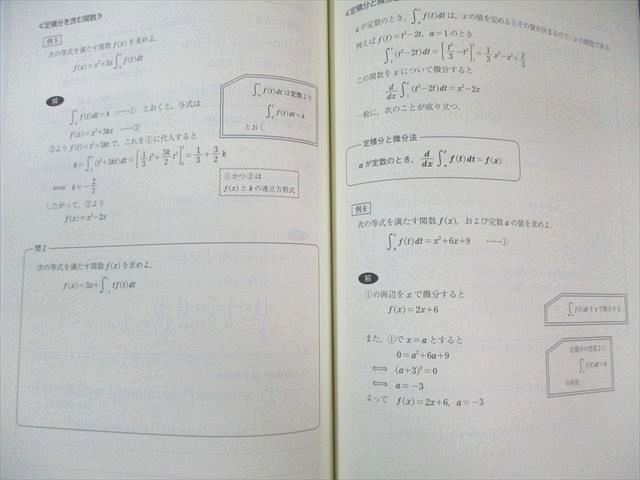 ≪定積分を含む関数≫
例5
次の等式を満たす関数f(x)を求めよ.
f(x)=x²+3x∫₀¹f(t)dt
解
∫₀¹f(t)dt=k ……① とおくと,与式は
f(x)=x²+3kx ……②
②よりf(t)=t²+3ktで,これを①に代入すると
k=∫₀¹(t²+3kt)dt=[1/3 t³+3k/2 t²]₀¹=1/3+3/2 k
⇔ k=-2/3
したがって,②より
f(x)=x²-2x
f(t)dtは定数より
f(t)dt=k
とおく
①かつ②は
f(x)とkの連立方程式
問2
次の等式を満たす関数f(x)を求めよ.
f(x)=3x+ tf(t)dt
≪定積分と微分法
aが定数のとき,∫ₐˣf(t)dtは,xの値を定めるとその値が決まるので,xの関数である
例えばf(t)=t²-2t, a=1のとき
∫₁ˣ(t²-2t)dt=[t³/3-t²]₁ˣ=1/3 x³-x²+2/3
この関数をxについて微分すると
d/dx∫₁ˣ(t²-2t)dt=x²-2x
一般に,次のことが成り立つ.
定積分と微分法
aが定数のとき, d/dx∫ₐˣf(t)dt=f(x)
例6
次の等式を満たす関数f(x),および定数aの値を求めよ.
∫ₐˣf(t)dt=x²+6x+9 ……①
解
①の両辺をxで微分すると
f(x)=2x+6
∫ₐˣf(t)dtをxで微分する
また,①でx=aとすると
0=a²+6a+9
⇔ (a+3)²=0
⇔ a=-3
よって f(x)=2x+6, a=-3
定積分の性質より
∫ₐᵃf(t)dt=0
の利用